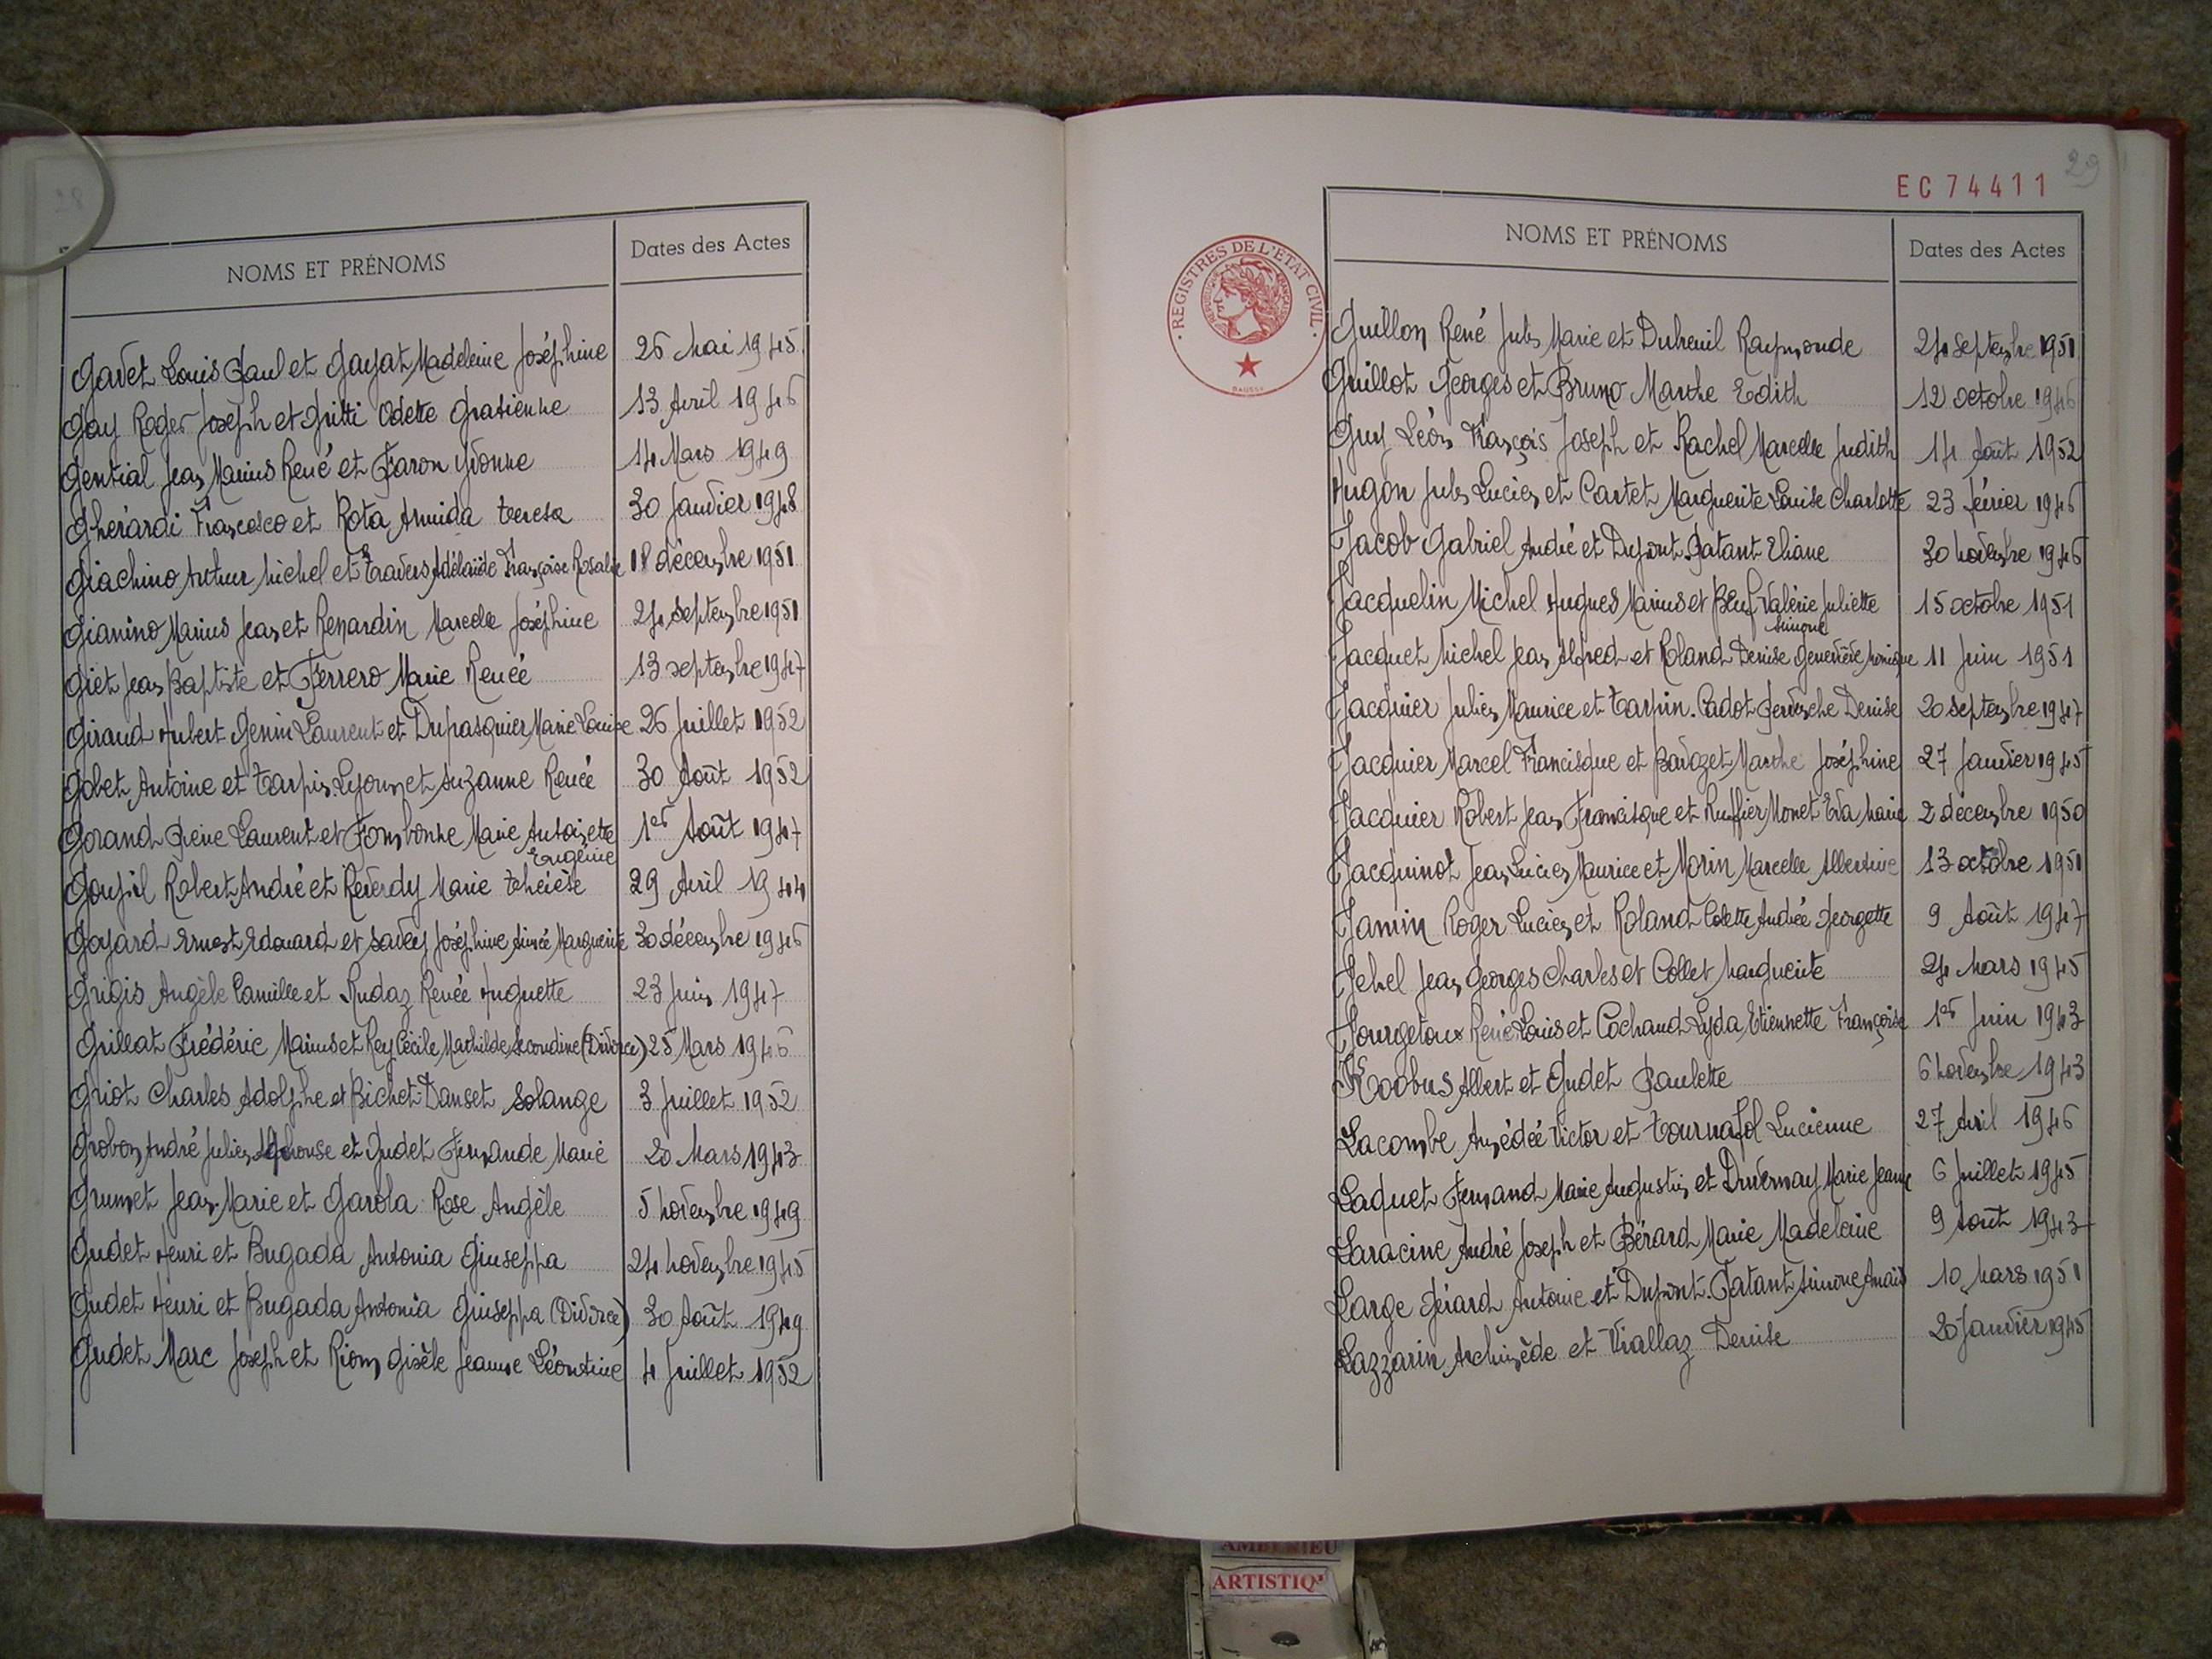 28
NOMS ET PRÉNOMS Dates des Actes
Gavet Louis Paul et Gayat Madeleine Joséphine 26 Mai 1945
Gay Roger Joseph et Gritti Odette Gratienne 13 Avril 1946
Gential Jean Marius René et Faron Yvonne 14 Mars 1949
Gherardi Francesco et Rota Armida Teresa 30 Janvier 1948
Giachino Arthur Michel et Travers Adélaïde Françoise Rosalie 18 décembre 1951
Gianino Marius Jean et Renardin Marcelle Joséphine 24 septembre 1951
Giet Jean Baptiste et Ferrero Marie Renée 13 septembre 1947
Giraud Hubert Genin Laurent et Dupasquier Marie Louise 26 Juillet 1952
Gobet Antoine et Tarpin. Lyonnet Suzanne Renée 30 Août 1952
Gorand Pierre Laurent et Fombonne Marie Antoinette 1er Août 1947
Eugénie
Goupil Robert André et Reverdy Marie Thérèse 29 Avril 1944
Goyard Ernest Edouard et Savey Joséphine Aimée Marguerite 30 décembre 1946
Grigis Angèle Camille et Rudaz Renée Huguette 23 Juin 1947
Grillat Frédéric Marius et Rey Cécile Mathilde Secondine (Divorce) 25 Mars 1946
Griot Charles Adolphe et Bichet-Danset Solange 3 Juillet 1952
Grobon André Julien Alphonse et Gudet Fernande Marie 20 Mars 1943
Grumet Jean-Marie et Garola Rose Angèle 5 novembre 1949
Gudet Henri et Bugada Antonia Giuseppa 24 novembre 1945
Gudet Henri et Bugada Antonia Giuseppa (Divorce) 30 Août 1949
Gudet Marc Joseph et Riom Gisèle Jeanne Léontine 4 Juillet 1952
EC 74411 29
REGISTRES DE L'ÉTAT CIVIL
NOMS ET PRÉNOMS Dates des Actes
Guillon René Jules Marie et Dubreuil Raymonde 24 septembre 1951
Guillot Georges et Bruno Marthe Edith 12 octobre 1946
Guy Léon François Joseph et Rachel Marcelle Judith 14 Août 1952
Hugon Jules Lucien et Cartet Marguerite Louise Charlotte 23 février 1946
Jacob Gabriel André et Dupont. Patant Eliane 30 novembre 1946
Jacquelin Michel Hugues Marius et Bœuf Valérie Juliette 15 octobre 1951
Simone
Jacquet Michel Jean Alfred et Roland Denise Geneviève Monique 11 Juin 1951
Jacquier Julien Maurice et Tarpin. Cadot Denise 20 septembre 1947
Jacquier Marcel Francisque et Bavozet Marthe Joséphine 27 Janvier 1945
Jacquier Robert Jean Francisque et Ruffier Monet Eva Marie 2 décembre 1950
Jacquinot Jean Lucien Maurice et Morin Marcelle Albertine 13 octobre 1951
Jamin Roger Lucien et Roland Colette Andrée Georgette 9 Août 1947
Jehel Jean Georges Charles et Collet Marguerite 24 Mars 1945
Jourgetoux René Louis et Cochand Lyda Etiennette Françoise 1er Juin 1943
Koobus Albert et Gudet Paulette 6 novembre 1943
Lacombe Amédée Victor et Tournafol Lucienne 27 Avril 1946
Laquet Fernand Marie Augustin et Duvernay Marie Jeanne 6 Juillet 1945
Laracine André Joseph et Bérard Marie Madeleine 9 Août 1943
Large Gérard Antoine et Dupont. Patant Simone Anaïs 10 Mars 1951
Lazzarin Archimède et Viallaz Denise 20 Janvier 1945
AMBERIEU
ARTISTIQ